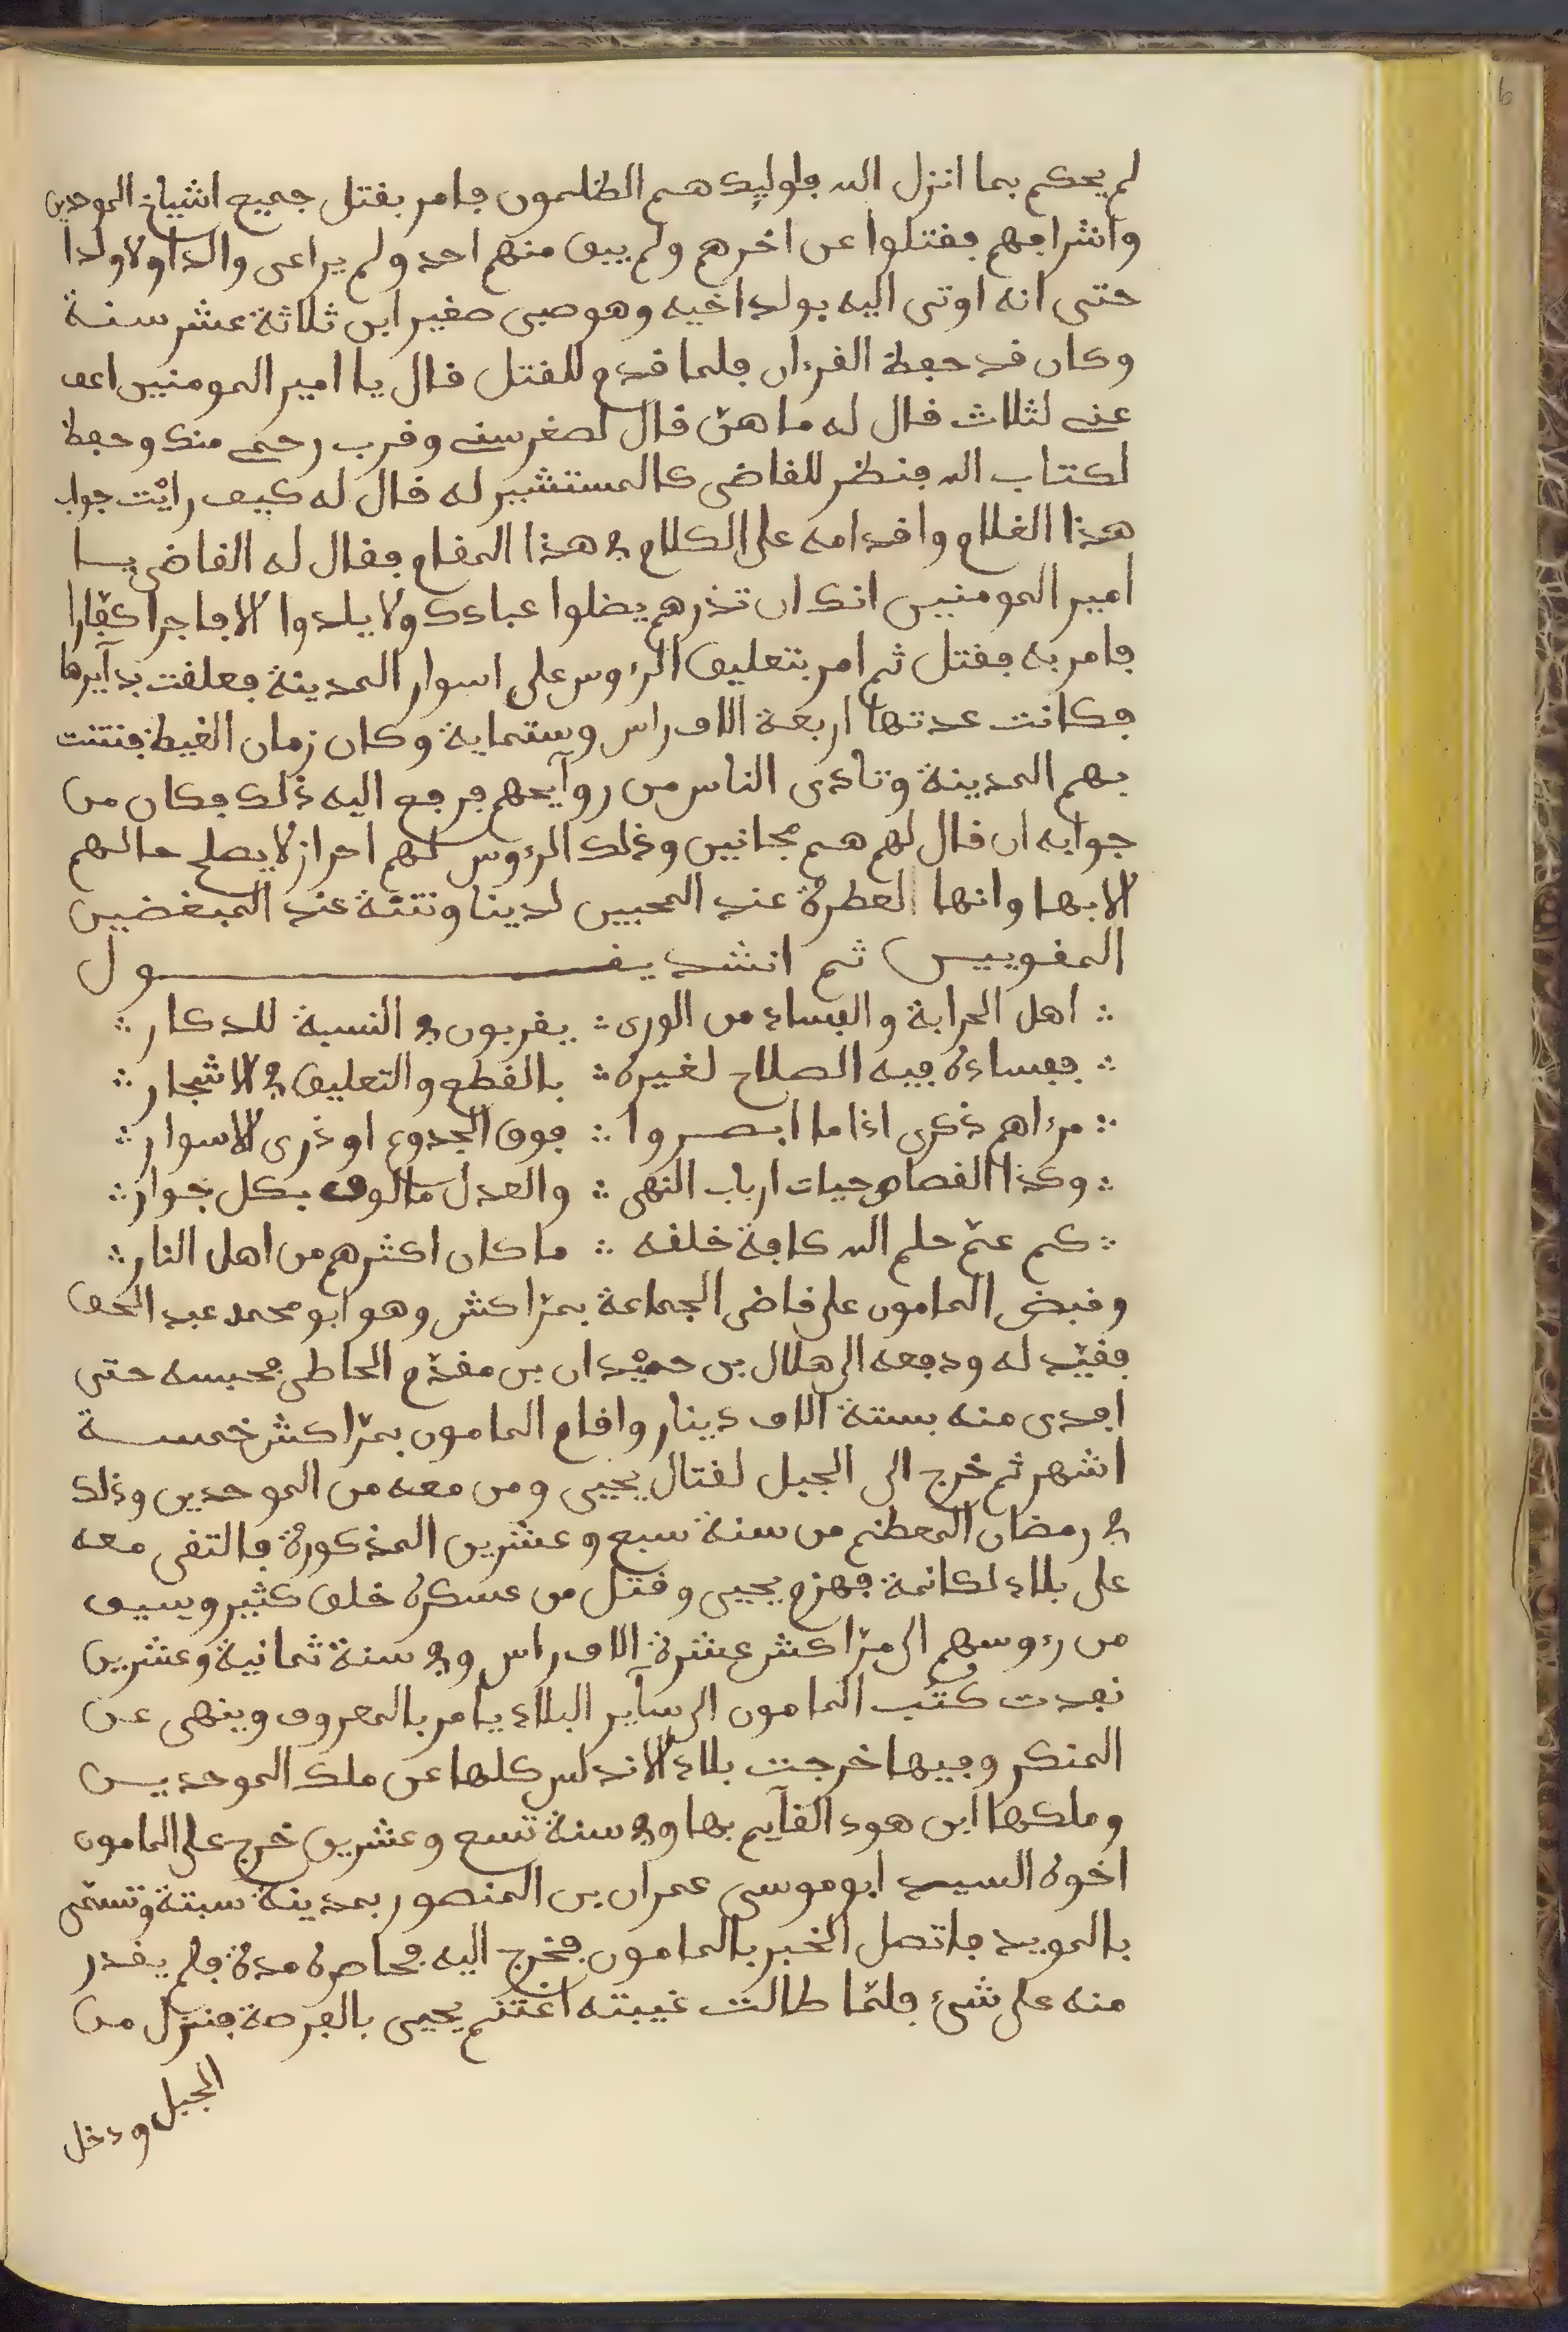 لم يحكم بما انزل الله فاوليك هم الظلمون فامر بقتل جميع اشياخ الموحدين
واشرافهم فقتلوا عن اخرهم ولم يبق منهم احد ولم يراعى والدا ولا ولدا
حتى انه اوتى اليه بولد اخيه وهو صبى صغير ابن ثلاثة عشر سنة
وكان قد حفظ القرءان فلما قدم للقتل قال يا امير المومنين اعف
عنى لثلاث قال له ما هنّ قال لصغر سنى وقرب رحمى منك وحفظ
لكتاب الله فنظر للقاضى كالمستشير له قال له كيف رايْت جواب
هذا الغلام واقدامه على الكلام في هذا المقام فقال له القاضى يا
امير المومنين انك ان تذرهم يضلوا عبادك ولا يلدوا الا فاجرا كفّارا
فامر به فقتل ثم امر بتعليق الرءوس على اسوار المدينة فعلقت بدآيرها
فكانت عدتها اربعة الاف راس وستماية وكان زمان الغيظ فنتنت
بهم المدينة وتاذى الناس من روآيحهم فرفع اليه ذلك فكان من
جوابه ان قال لهم هم مجانين وذلك الرءوس لهم احراز لا يصلح حالهم
الا بها وانها لعطرة عند المحبين لدينا ونتنة عند المبغضين
المغويين ثم انشد يقول
؞ اهل الحرابة والفساد من الورى ؞ يقربون في النسبة للدكار ؞
؞ ففساده فيه الصلاح لغيره ؞ بالقطع والتعليق في الاشجار ؞
؞ مرءاهم ذكرى اذا ما ابصروا ؞ فوق الجدوع او ذرى الاسوار ؞
؞ وكذا القصاص حيات ارباب النهى ؞ والعدل مالوف بكل جوار ؞
؞ كم عمّ حلم الله كافة خلقه ؞ ما كان اكثرهم من اهل النار ؞
وقبض المامون على قاضى الجماعة بمرّاكش وهو ابو محمد عبد الحق
فقيّد له ودفعه الى هلال بن حميْدان بن مقدّم الحاطى فحبسه حتى
افدى منه بستة الاف دينار واقام المامون بمرّاكش خمسة
اشهر ثم خرج الى الجبل لقتال يحيى ومن معه من الموحدين وذلك
في رمضان المعظم من سنة سبع وعشرين المذكورة فالتقى معه
على بلاد لكانمة فهزم يحيى وقتل من عسكره خلق كثير وسيق
من رءوسهم الى مرّاكش عشرة الاف راس وفي سنة ثمانية وعشرين
نفدت كتُب المامون الى سآير البلاد يامر بالمعروف وينهى عن
المنكر وفيها خرجت بلاد الاندلس كلها عن ملك الموحدين
وملكها ابن هود القآيم بها وفي سنة تسع وعشرين خرج على المامون
اخوه السيد ابو موسى عمران بن المنصور بمدينة سبتة وتسمّى
بالمويد فاتصل الخبر بالمامون فخرج اليه فحاصره مدة فلم يقدر
منه على شىء فلمّا طالت غيبته اغتنم يحيى بالفرصة فنزل من
الجبل ودخل